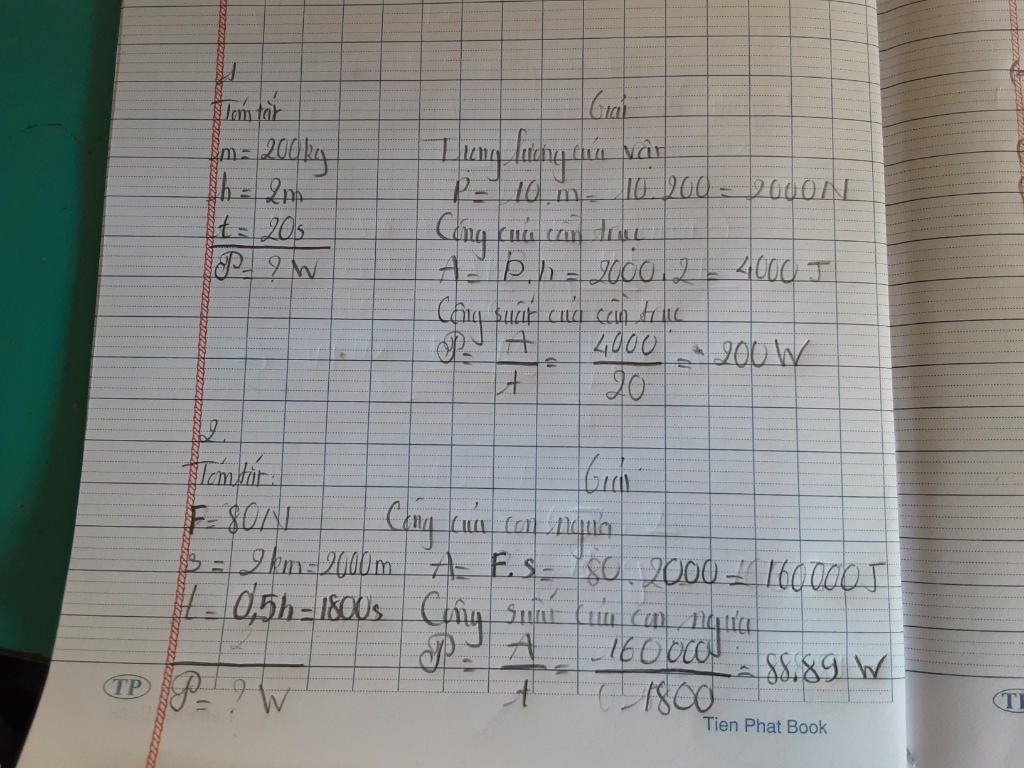 1
Tóm tắt Giải
m = 200kg Trọng lượng của vật
h = 2m P = 10.m = 10.200 = 2000N
t = 20s Công của cần trục
𝒫 = ? W A = P.h = 2000.2 = 4000J
Công suất của cần trục
𝒫 = A/t = 4000/20 = 200W
2.
Tóm tắt: Giải
F = 80N Công của con ngựa
s = 2km = 2000m A = F.s = 80.2000 = 160000J
t = 0,5h = 1800s Công suất của con ngựa
𝒫 = ? W 𝒫 = A/t = 160000/1800 = 88.89 W
TP
Tien Phat Book